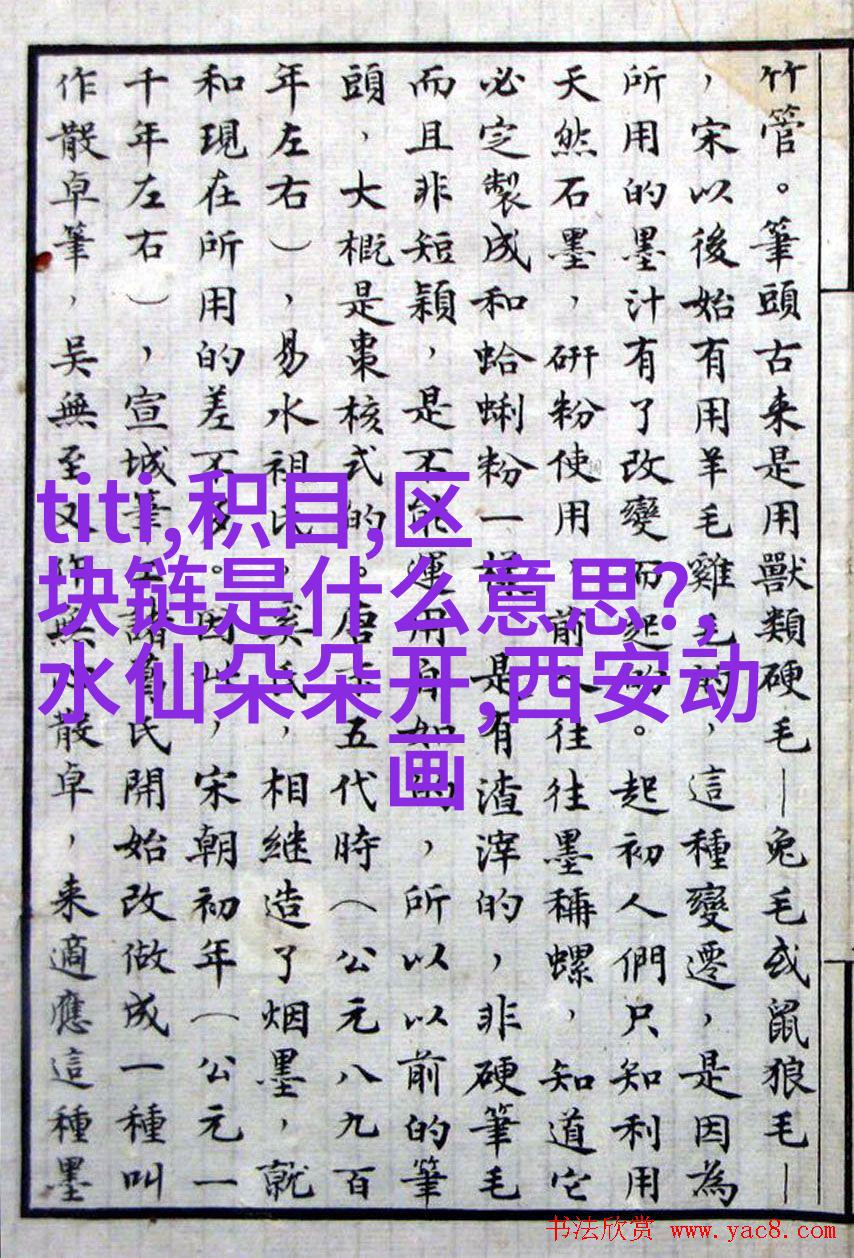 竹管。筆頭古来是用獸類硬毛—兔毛或鼠狼毛—
，宋以後始有用羊毛雞毛的，這種變遷，是因為
所用的墨汁有了改變而起的。起初人們只知利用
天然石墨，研粉使用，前人往往墨稱螺，知道它
必定製成和蛤蜊粉一樣，是有渣滓的，非硬筆毛
而且非短穎，是不能運用自如的，所以以前的筆
頭，大概是棗核式的。唐五代時（公元八九百
年左右），易水祖氏，奚氏，相继造了烟墨，就
和現在所用的差不多。因此，宋朝初年（公元一
千年左右），宣城筆工諸葛氏開始改做成一種叫
作散卓筆，吳無至又作無心散卓，来適應這種墨
titi,积目,区
块链是什么意思?,
水仙朵朵开,西安动
画
书法欣赏 www.yac8.com